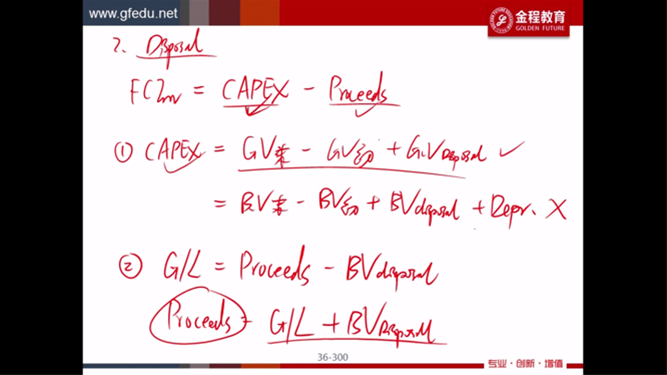 www.gfedu.net
金程教育
GOLDEN FUTURE
2. Disposal
FCInv = CAPEX - Proceeds
① CAPEX = GV末 - GV初 + GV Disposal ✓
= BV末 - BV初 + BV disposal + Depr. X
② G/L = Proceeds - BV disposal
Proceeds = G/L + BV Disposal
36-300
专业·创新·增值